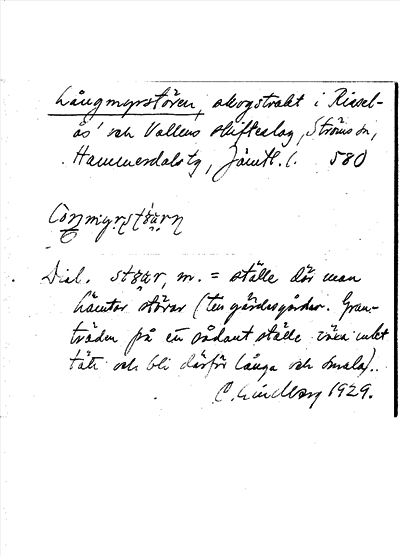 Långmyrstören, skogstrakt i Rissel-
ås' och Vallens skifteslag, Ströms sn,
Hammerdals tg, Jämtl. l. 580
Dial. m. = ställe där man
hämtar störar (till gärdesgårdar. Gran-
träden på ett sådant ställe växa mket
tätt och bli därför långa och smala)..
C. Lindberg 1929.